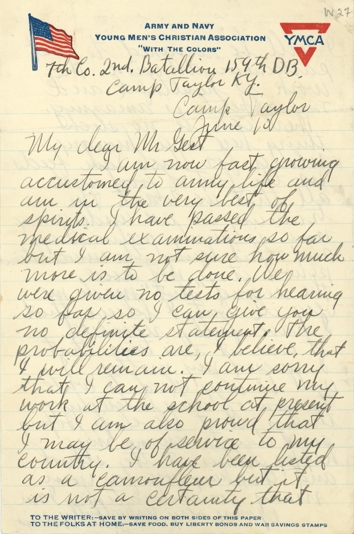 W 27
ARMY AND NAVY
YOUNG MEN'S CHRISTIAN ASSOCIATION
"WITH THE COLORS"
YMCA
7th Co. 2nd. Batallion 159th D.B.
Camp Taylor Ky.
Camp Taylor
June
My dear Mr Gest
I am now fast growing
accustomed to army life and
am in the very best of
spirits. I have passed the
medical examinations so far
but I am not sure how much
more is to be done. We
were given no tests for hearing
so far, so I can give you
no definite statement. The
probabilities are, I believe, that
I will remain. I am sorry
that I can not continue my
work at the school at present
but I am also proud that
I may be of service to my
country. I have been listed
as a camoufleur but it
is not a certainty that
TO THE WRITER:—SAVE BY WRITING ON BOTH SIDES OF THIS PAPER
TO THE FOLKS AT HOME.—SAVE FOOD, BUY LIBERTY BONDS AND WAR SAVINGS STAMPS